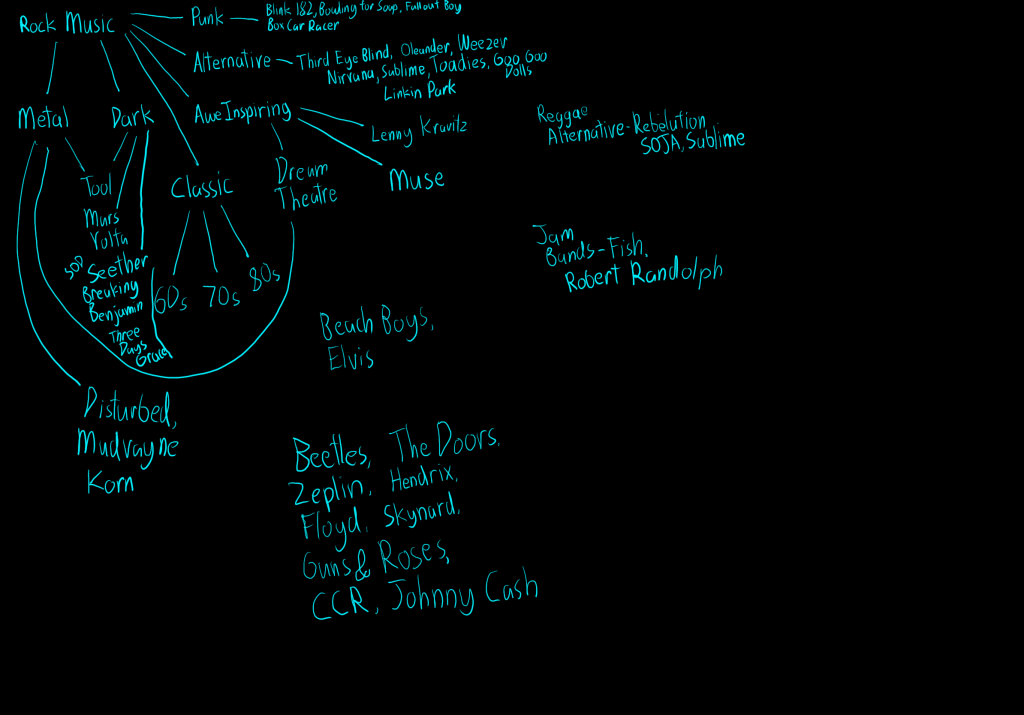 Rock Music
Punk
Blink 182, Bowling for Soup, Fallout Boy
Box Car Racer
Alternative
Third Eye Blind, Oleander, Weezer
Nirvana, Sublime, Toadies, Goo Goo
Dolls
Linkin Park
Metal
Dark
Awe Inspiring
Lenny Kravitz
Muse
Dream
Theatre
Classic
60s
70s
80s
Tool
Mars
Volta
Seether
Breaking
Benjamin
Three
Days
Grace
Disturbed,
Mudvayne
Korn
Reggae
Alternative-Rebelution
SOJA, Sublime
Jam
Bands-Fish,
Robert Randolph
Beach Boys,
Elvis
Beetles, The Doors,
Zeplin, Hendrix,
Floyd, Skynard,
Guns & Roses,
CCR, Johnny Cash